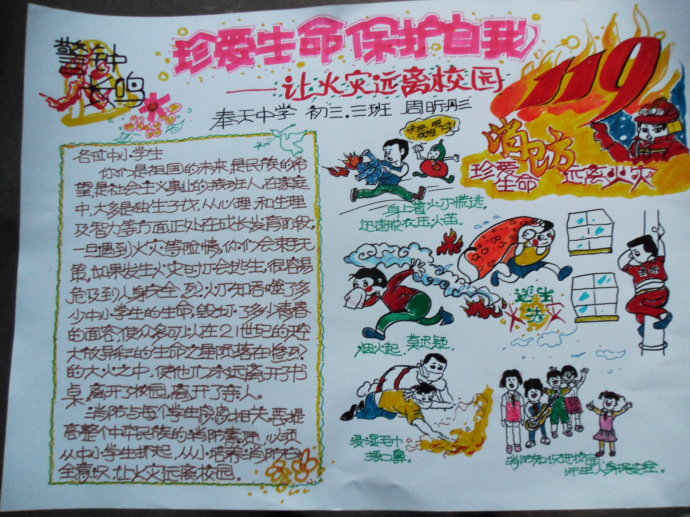 警钟
长鸣
珍爱生命 保护自我
——让火灾远离校园
奉天中学 初三.三班 周昕彤
119
消防
珍爱 远离火灾
生命
各位中小学生
你们是祖国的未来,是民族的希
望,是社会主义事业的接班人,在家庭
中,大多是独生子女,从心理和生理
及智力等方面正处在成长发育阶段,
一旦遇到火灾等险情,你们会束手无
策,如果发生火灾时不会逃生,很容易
危及到人身安全,烈火不知吞噬了多
少中小学生的生命,毁坏了多少青春
的面容,使众多可以在21世纪的天空
大放异彩的生命之星陨落在惨烈
的大火之中,使他们永远离开了书
桌,离开了校园,离开了亲人。
消防与每个学生息息相关,要提
高整个中华民族的消防素质,必须
从中小学生抓起,从小培养消防安
全意识,让火灾远离校园。
身上着火不慌逃
迅速脱衣压火苗。
逃生
烟火起,莫迟疑。
浸湿毛巾
捂口鼻。
消防知识进校园
师生人身保安全。